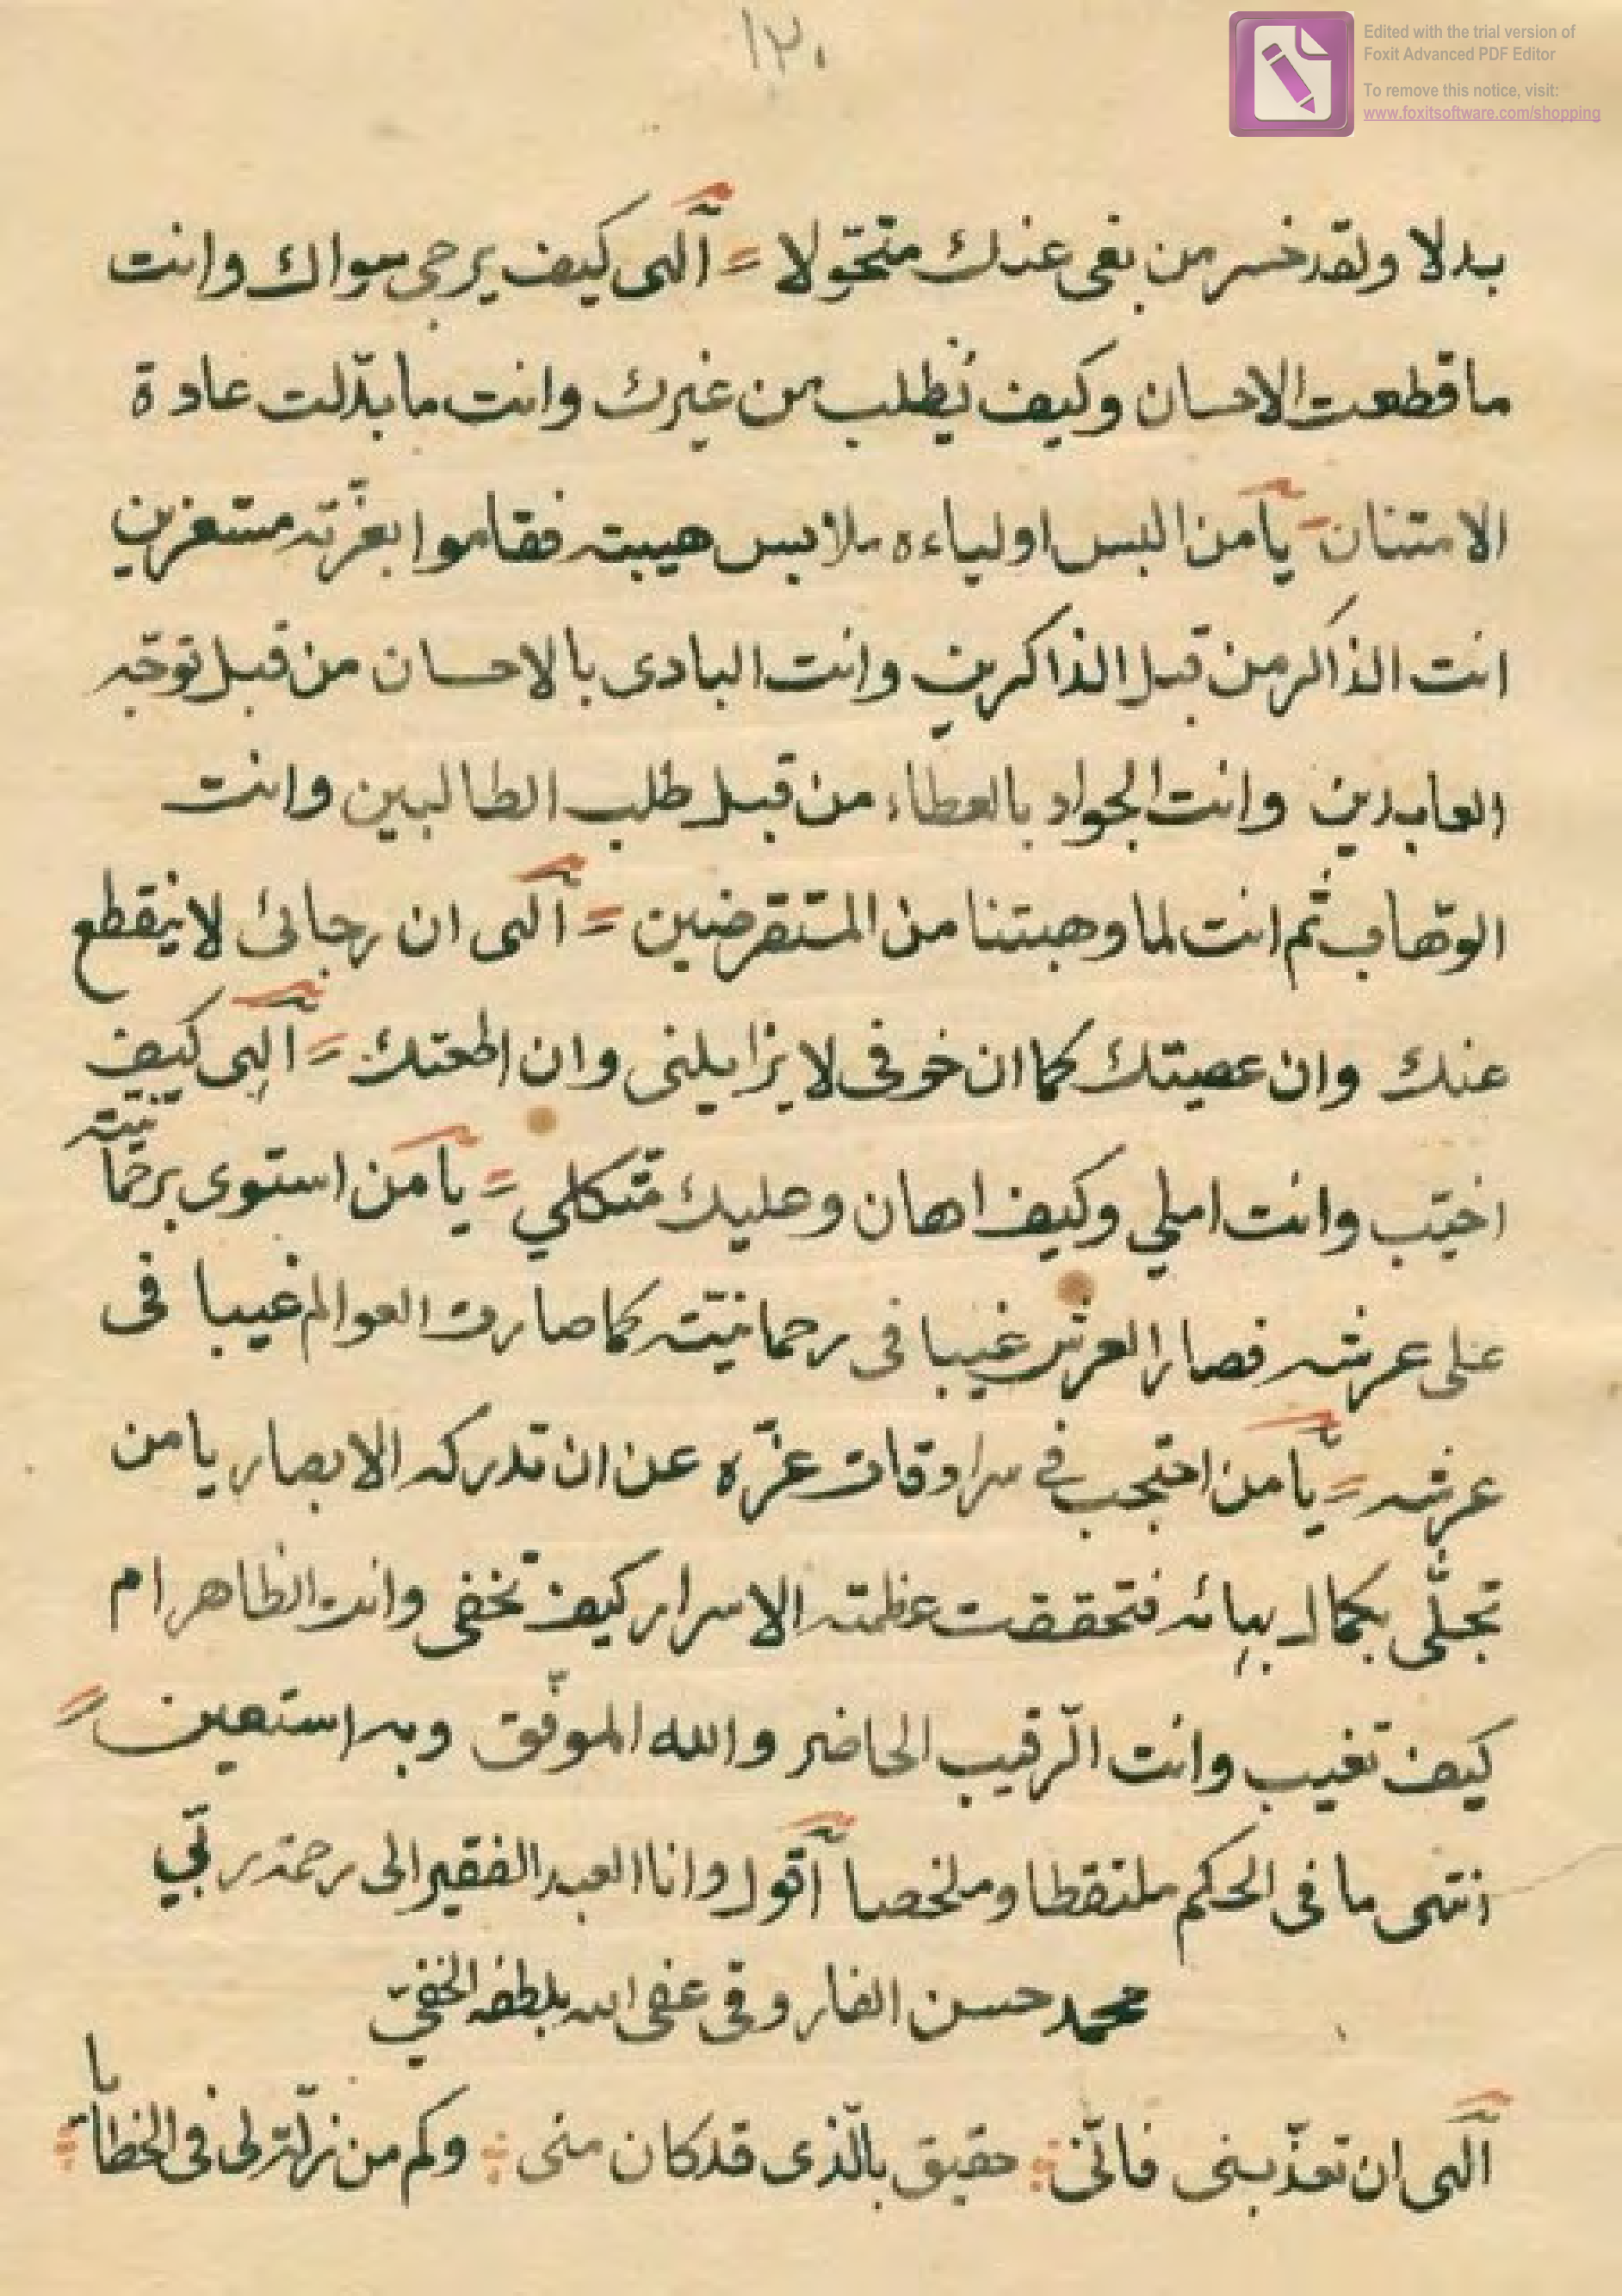 ١٣٠
Edited with the trial version of
Foxit Advanced PDF Editor
To remove this notice, visit:
www.foxitsoftware.com/shopping
بدلا ولقد خسر من بغى عنك متحوّلا = آلهى كيف يرجى سواك وانت
ما قطعت الاحسان وكيف يُطلب من غيرك وانت ما بدّلت عادة
الامتنان = يا من البس اولياءه ملابس هيبته فقاموا بعزّته مستعزين
انت الذاكر من قبل الذاكرين وانت البادى بالاحسان من قبل توجّه
العابدين وانت الجواد بالعطاء من قبل طلب الطالبين وانت
الوهّاب ثم انت لما وهبتنا من المستقرضين = آلهى ان رجائ لا ينقطع
عنك وان عصيتك كما ان خوفى لا يزايلنى وان اطعتك = آلهى كيف
اخيّب وانت املي وكيف اهان وعليك متّكلي = يا من استوى برحمانيّته
على عرشه فصار العرش غيبا فى رحمانيّته كما صارت العوالم غيبا فى
عرشه = يا من احتجب في سرادقات عزّه عن ان تدركه الابصار يا من
تجلّى بكمال بهائه فتحققت عظمته الاسرار كيف تخفى وانت الظاهر ام
كيف تغيب وانت الرّقيب الحاضر والله الموفّق وبه استعين =
انتهى ما فى الحكم ملتقطا وملخصا آقول وانا العبد الفقير الى رحمة ربّي
محمد حسن الفاروقى عفى الله بلطفه الخفيّ
آلهى ان تعذّبنى فانّى حقيق بالّذى قد كان منى وكم من زلّة لى فى الخطايا